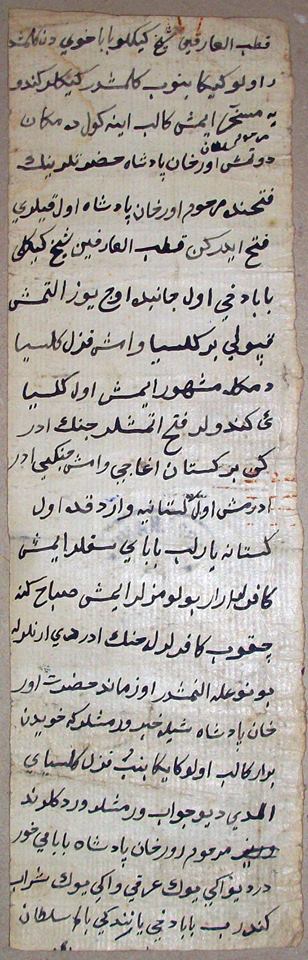 قطب العارفين شيخ كيكلو بابا خوي دن كلمشدر
در اولو كيكا بنوب كلمشدر كيكلر كندو
يه مسخر ايمش كالب اينه كول ده مكان
دوتمش اورخان پادشاه حضرتلرينك
مرحوم سلطان
فتحنده مرحوم اورخان پادشاه اول قبلري
فتح ايدركن قطب العارفين شيخ كيكلي
بابا دخي اول جانبده اوج يوز التمش
قپولي بر كلسيا وامش قزل كلسيا
دمكله مشهور ايمش اول كلسيا
ئي كندولر فتح اتمشلر جنك ادر
كن بر كستان اغاجي وامش جنكي ادر
ادرمش اول كستانيه واردقده اول
كستانه يارلب بابايي سقلر ايمش
كافرلر ارار بولومزلر ايمش صباح كنه
چقوب كافرلرله جنك ادر يدي ارنلرله
بونوعله التمشدر اوزمانده حضرت اور
خان پادشاه شيله خبر ورمشلر كه خويدن
برار كالب اولو كيكا بنب قزل كلسياي
الدي ديو جواب ورمشلر وردكلرنده
مرحوم اورخان پادشاه بابامي خور
درديو اكي يوك عرقي واكي يوك شراب
كندرب بابا دخي يازندكي بالله سلطان